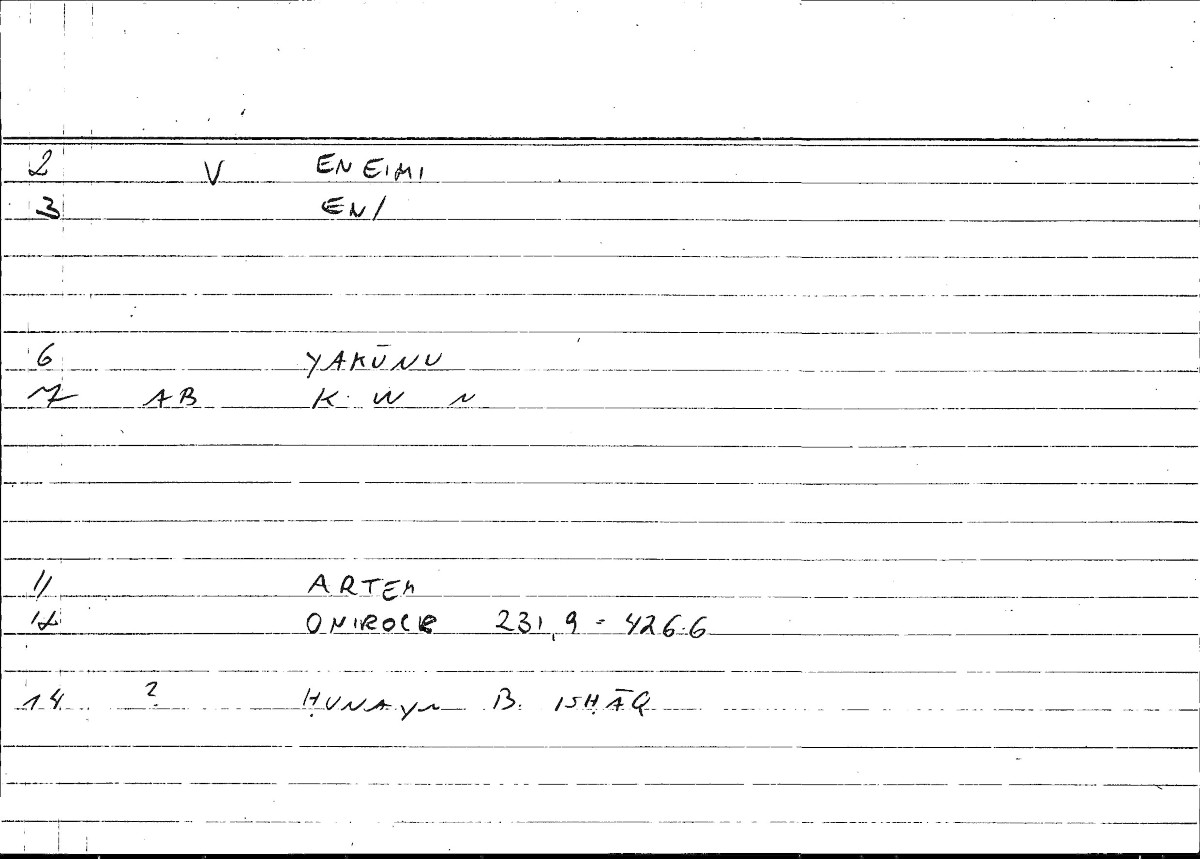 2 V EN EIMI
3 EN/
6 YAKŪNU
7 AB K W N
11 ARTEM
12 ONIROCR 231,9 - 426.6
14 ? ḤUNAYN B. ISḤĀQ